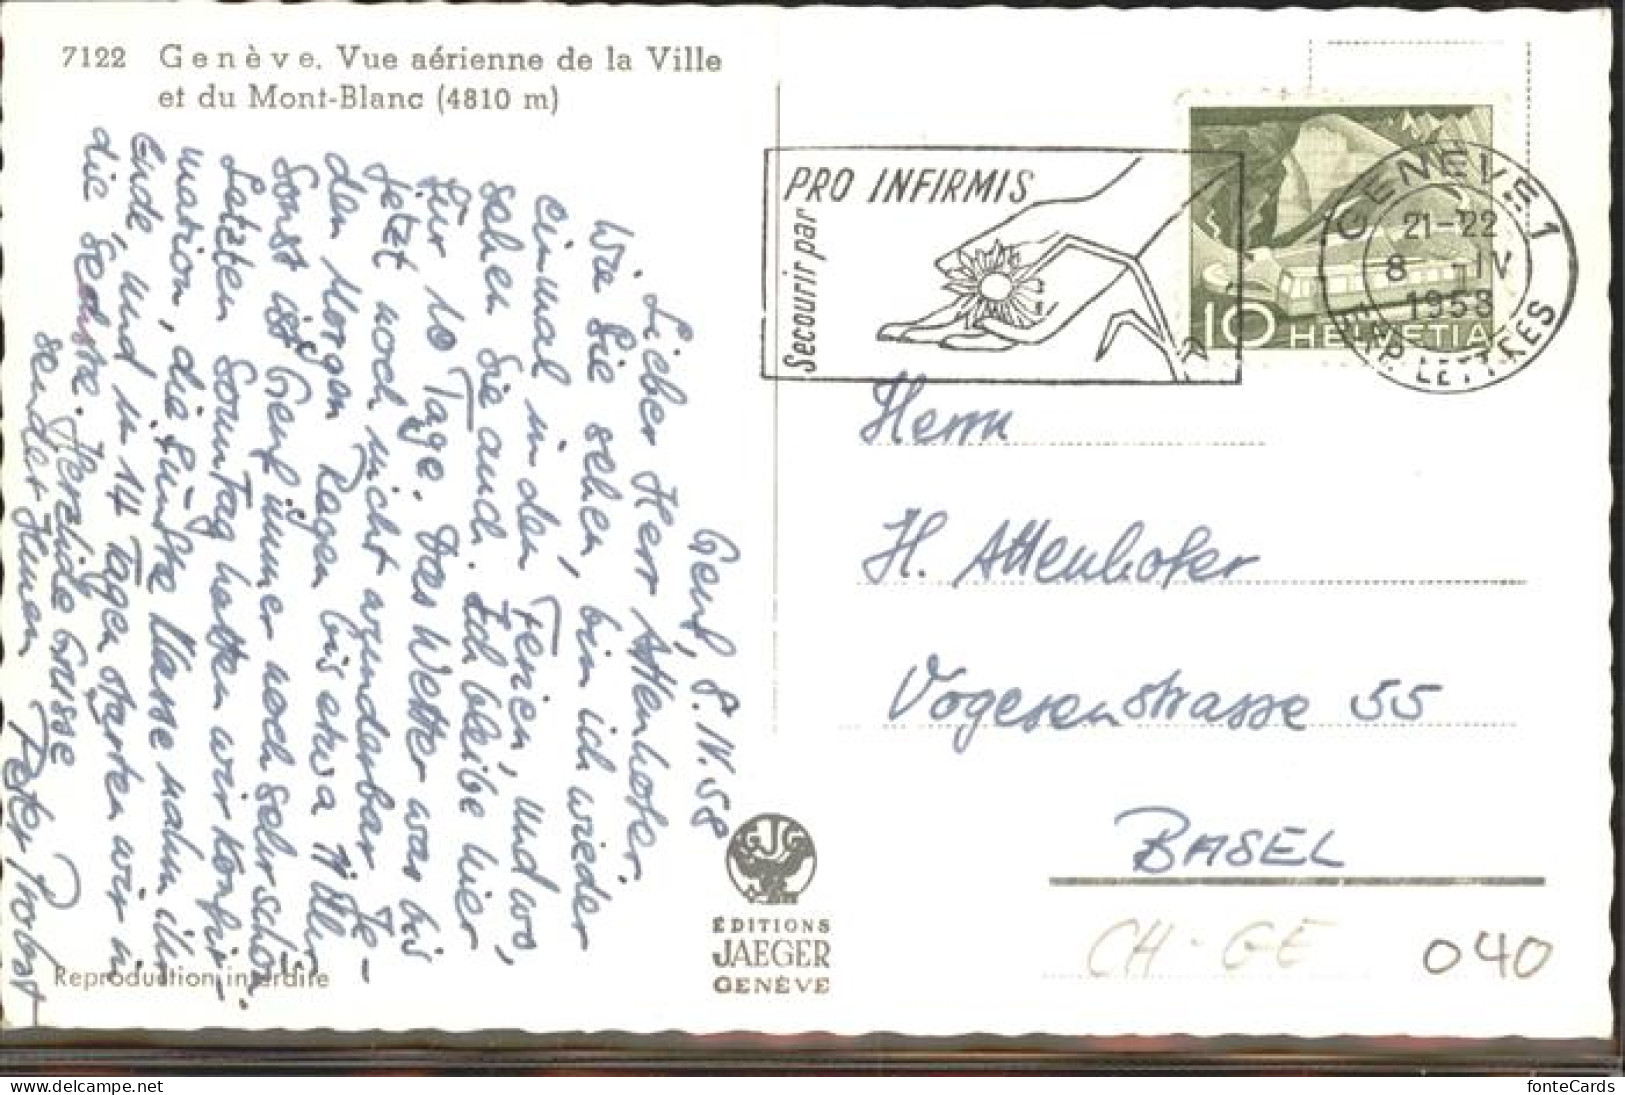 7122 Genève. Vue aérienne de la Ville
et du Mont-Blanc (4810 m)
Genf, 8. IV. 58
Lieber Herr Attenhofer.
Wie Sie sehen, bin ich wieder
einmal in den Ferien, und wo,
sehen Sie auch. Ich bleibe hier
für 10 Tage. Das Wetter war bis
jetzt noch nicht wunderbar. Je-
den Morgen Regen bis etwa 11 Uhr
Sonst ist Genf immer noch sehr schön.
Letzten Sonntag hatten wir Konfir-
mation, die fünfte Klasse nahm ihr
Ende, und in 14 Tagen starten wir in
die Sechste. Herzliche Grüsse
sendet Ihnen Peter Probst
Reproduction interdite
ÉDITIONS
JAEGER
GENÈVE
PRO INFIRMIS
Secourir par
10 HELVETIA
GENÈVE 1
21-22
8 -IV
1958
EXP. LETTRES
Herrn
H. Attenhofer
Vogesenstrasse 55
BASEL
CH-GE
040
https://www.delcampe.net
fonteCards